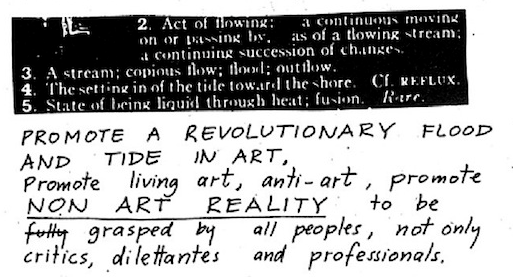 2. Act of flowing: a continuous moving
on or passing by, as of a flowing stream;
a continuing succession of changes.
3. A stream; copious flow; flood; outflow.
4. The setting in of the tide toward the shore. Cf. REFLUX.
5. State of being liquid through heat; fusion. Rare.
PROMOTE A REVOLUTIONARY FLOOD
AND TIDE IN ART,
Promote living art, anti-art, promote
NON ART REALITY to be
fully grasped by all peoples, not only
critics, dilettantes and professionals.